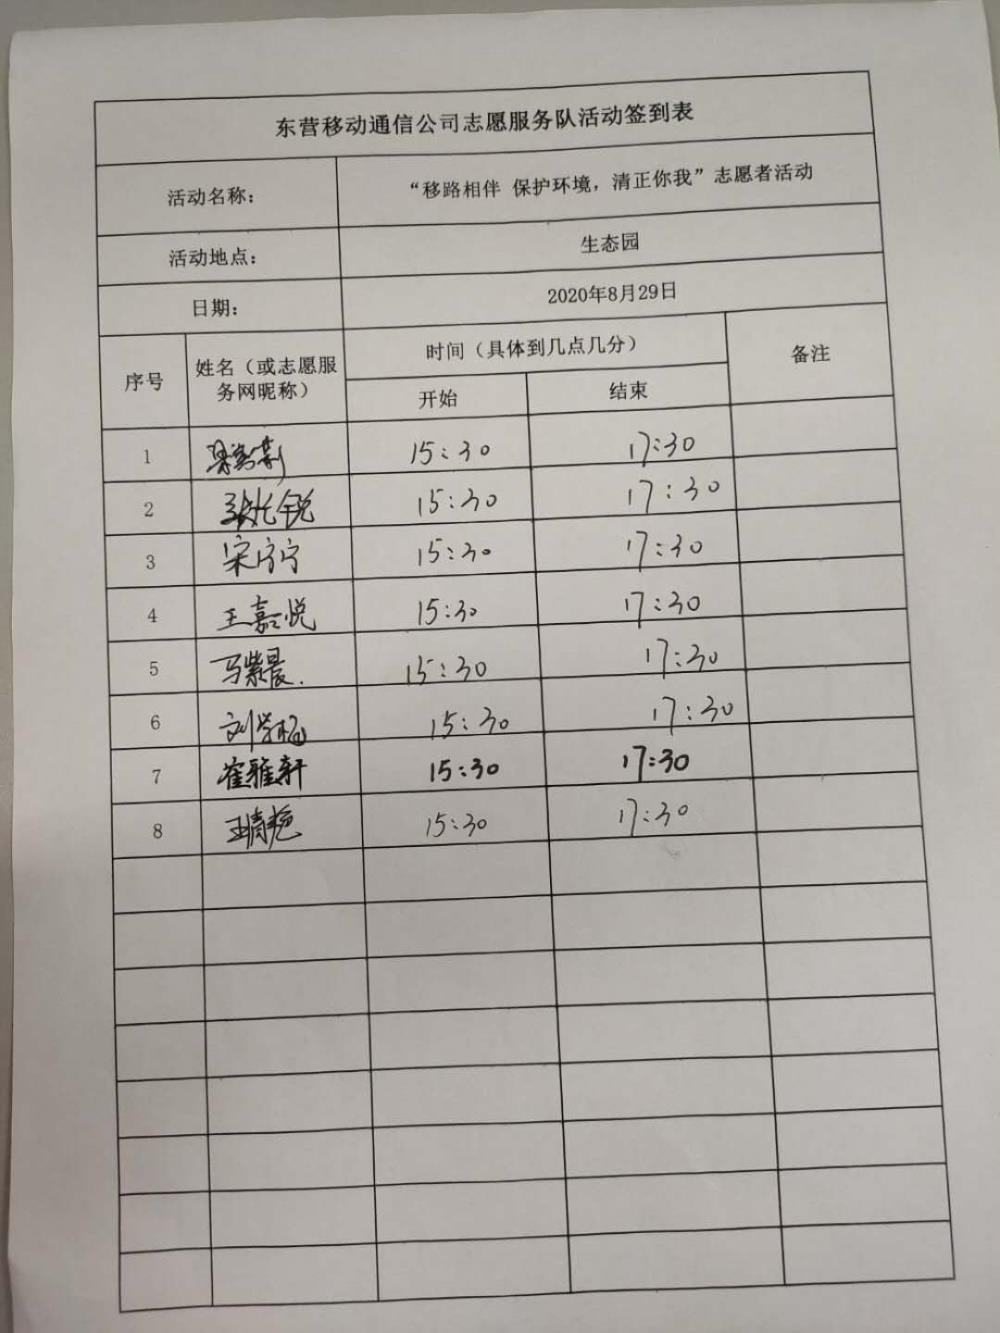 东营移动通信公司志愿服务队活动签到表
活动名称： “移路相伴 保护环境，清正你我”志愿者活动
活动地点： 生态园
日期： 2020年8月29日
序号 姓名（或志愿服务网昵称） 时间（具体到几点几分） 备注
开始 结束
1 15:30 17:30
2 15:30 17:30
3 宋宁宁 15:30 17:30
4 王嘉悦 15:30 17:30
5 马紫晨. 15:30 17:30
6 15:30 17:30
7 崔雅轩 15:30 17:30
8 王倩艳 15:30 17:30